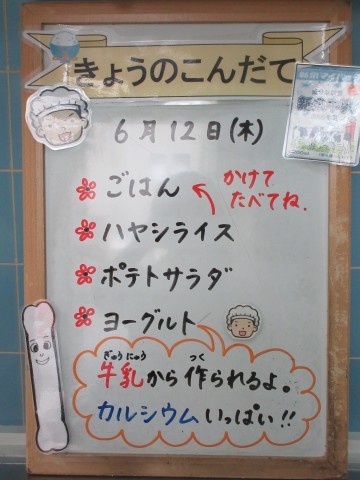 きょうのこんだて
6月12日(木)
ごはん
かけて
たべてね.
ハヤシライス
ポテトサラダ
ヨーグルト
ぎゅうにゅう つく
牛乳から作られるよ。
カルシウムいっぱい!!